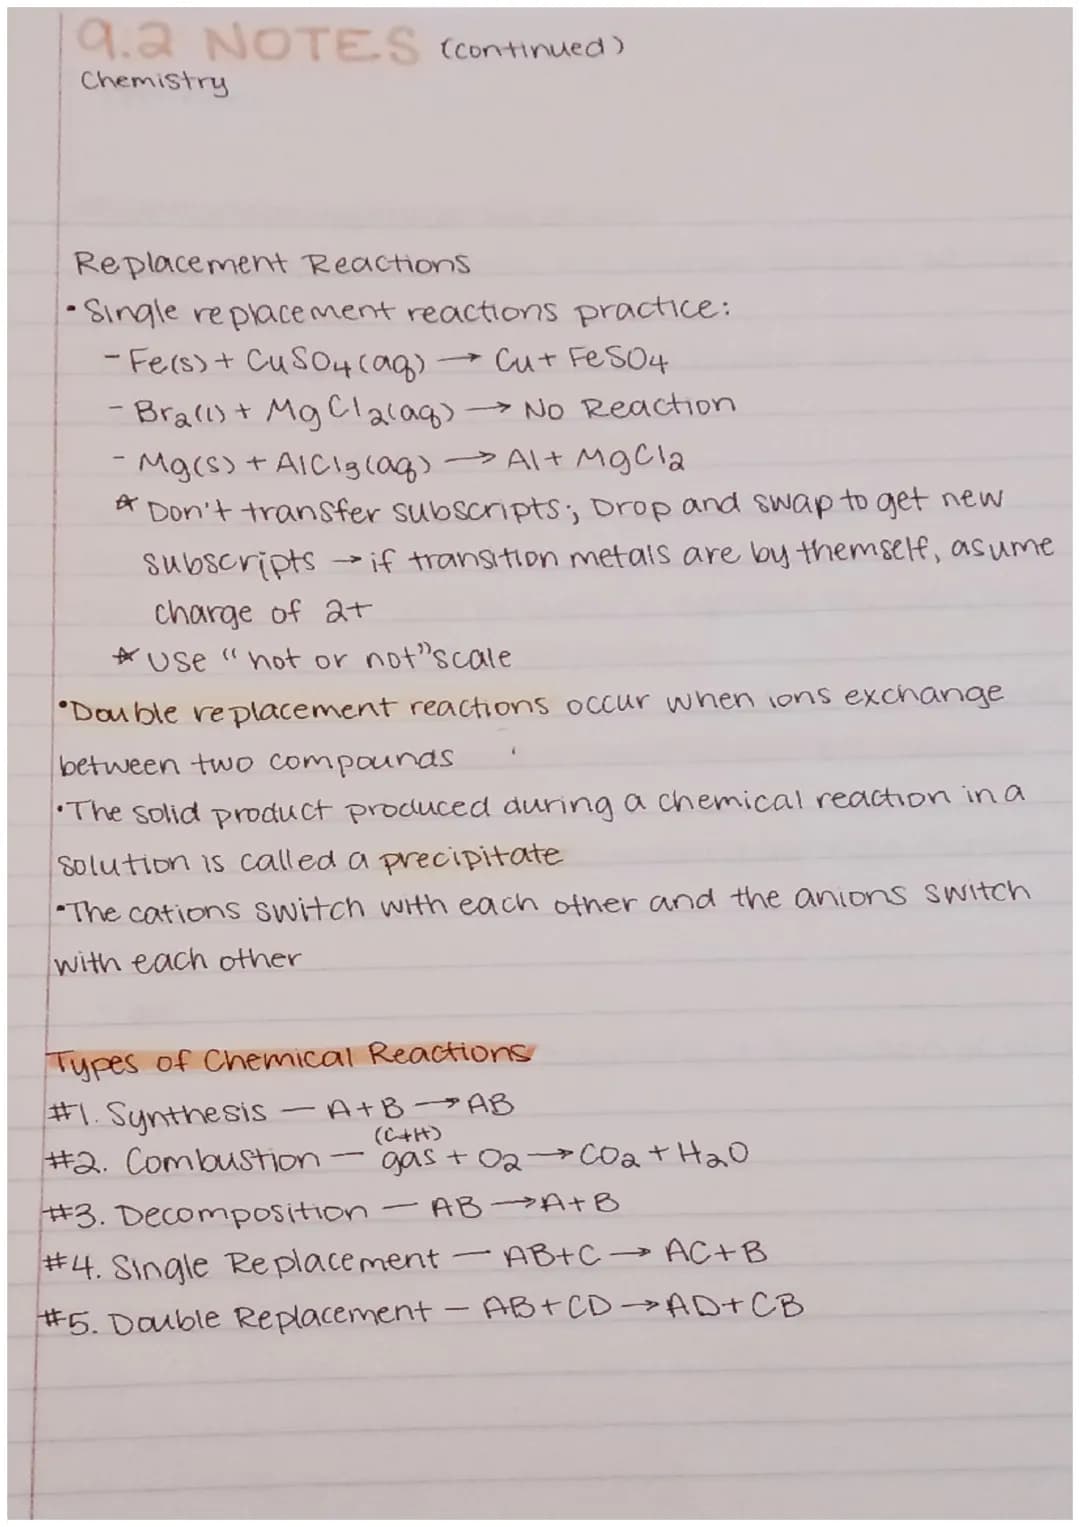 9.2 NOTES (continued)
Chemistry
Replacement Reactions
• Single replacement reactions practice:
- Fe(s) + CuSO₄(aq) → Cu + FeSO₄
- Br₂(l) + MgCl₂(aq) → No Reaction
- Mg(s) + AlCl₃(aq) → Al + MgCl₂
☆ Don't transfer subscripts; Drop and swap to get new
subscripts → if transition metals are by themself, asume
charge of 2+
☆ Use "hot or not" scale
• Double replacement reactions occur when ions exchange
between two compounds
• The solid product produced during a chemical reaction in a
solution is called a precipitate
• The cations switch with each other and the anions switch
with each other
Types of Chemical Reactions
#1. Synthesis — A + B → AB
(C+H)
#2. Combustion — gas + O₂ → CO₂ + H₂O
#3. Decomposition — AB → A + B
#4. Single Replacement — AB + C → AC + B
#5. Double Replacement — AB + CD → AD + CB